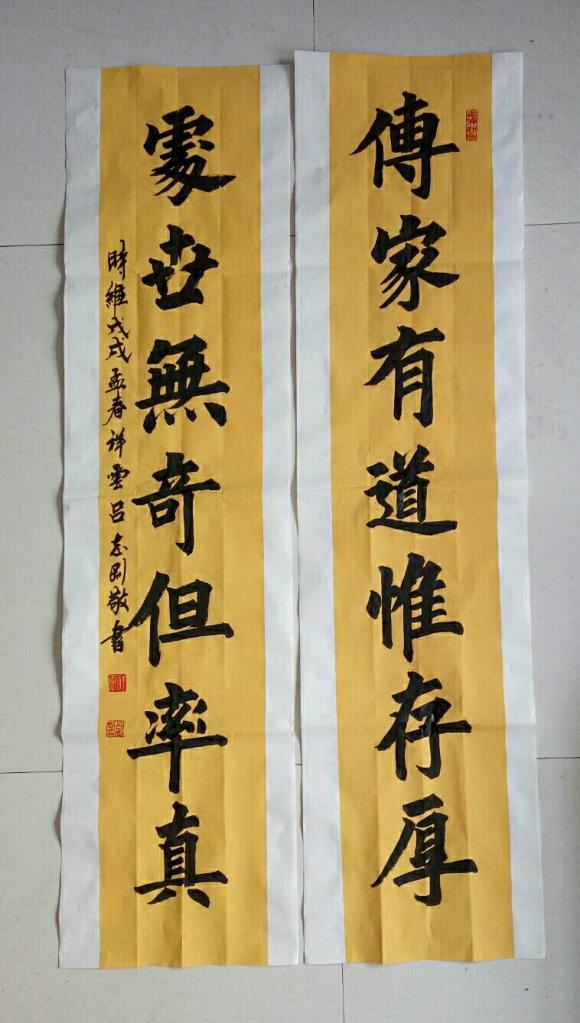 傳家有道惟存厚
處世無奇但率真
時維戊戌孟春祥雲吕志剛敬書